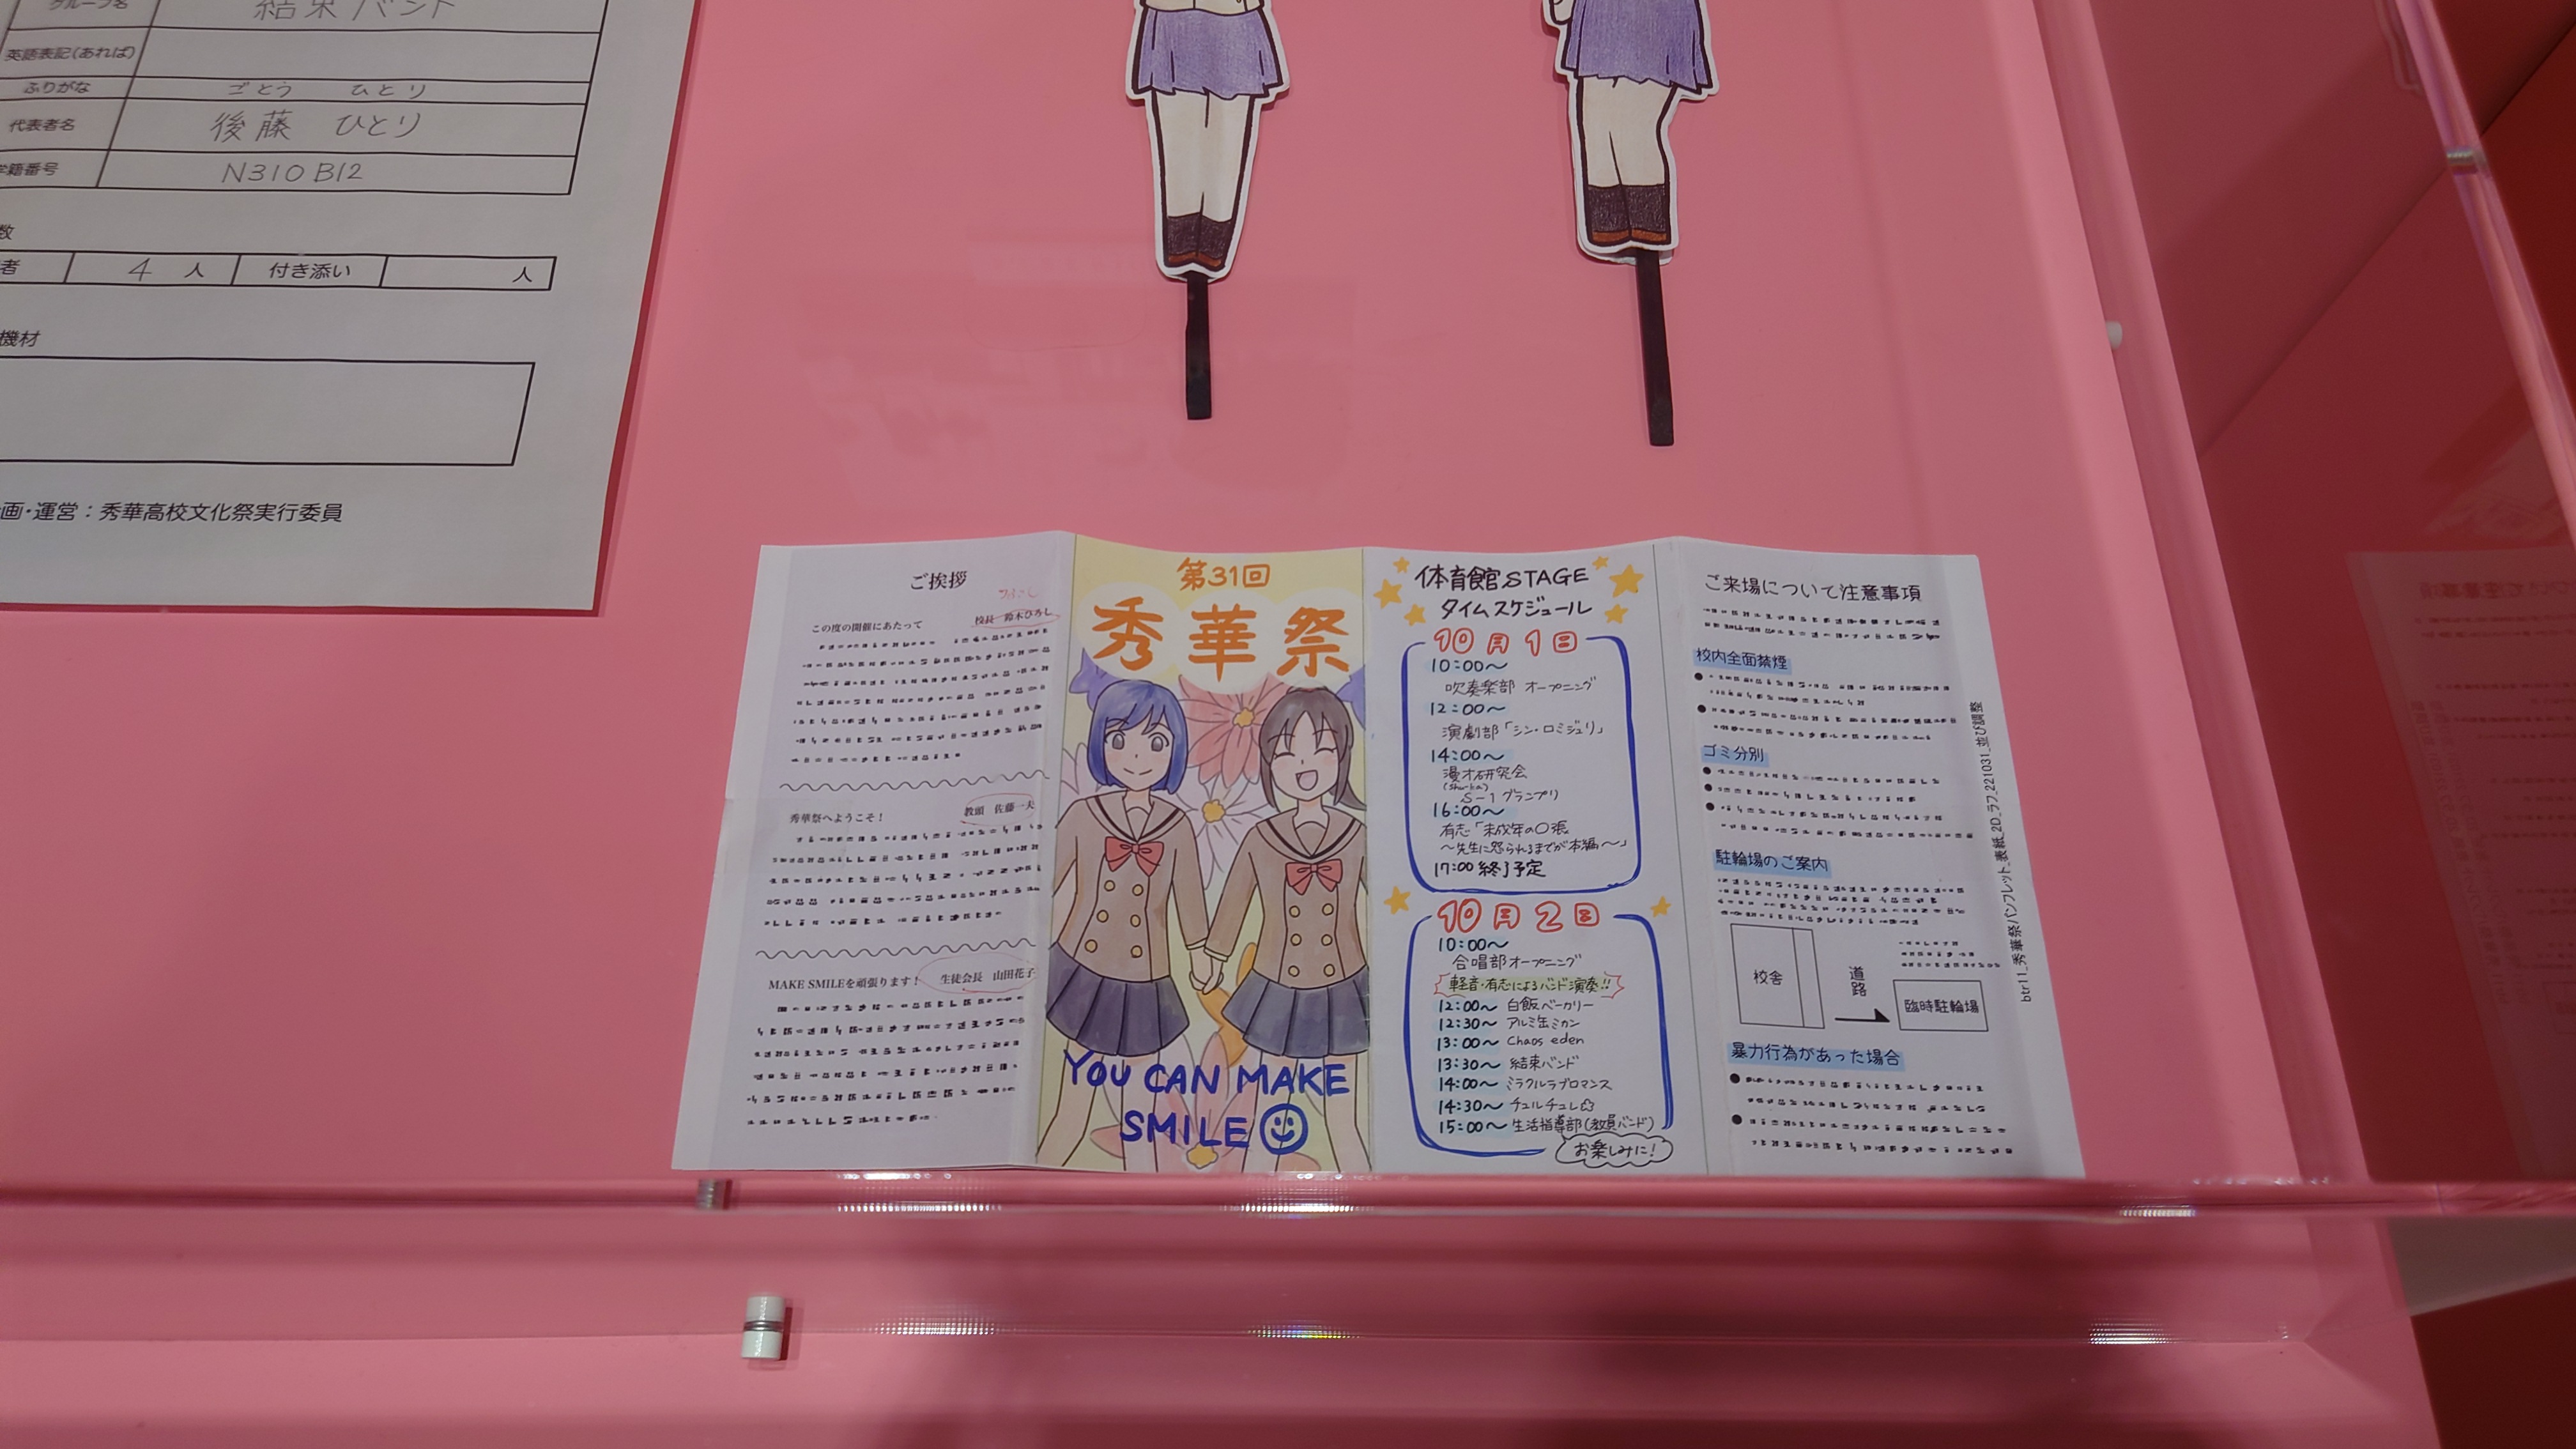 グループ名 結束バンド
英語表記(あれば)
ふりがな ごとう ひとり
代表者名 後藤 ひとり
学籍番号 N310B12
数
者 4 人 付き添い 人
機材
画・運営：秀華高校文化祭実行委員
ご挨拶
この度の開催にあたって 校長 鈴木ひろし
秀華祭へようこそ！ 教頭 佐藤一夫
MAKE SMILEを頑張ります！ 生徒会長 山田花子
第31回
秀華祭
YOU CAN MAKE
SMILE
体育館STAGE
タイムスケジュール
10月1日
10:00〜
吹奏楽部 オープニング
12:00〜
演劇部「シン・ロミジュリ」
14:00〜
漫才研究会
S-1グランプリ
16:00〜
有志「未成年の〇張
〜先生に怒られるまでが本編〜」
17:00 終了予定
10月2日
10:00〜
合唱部オープニング
軽音・有志によるバンド演奏!!
12:00〜 白飯ベーカリー
12:30〜 アルミ缶ミカン
13:00〜 Chaos eden
13:30〜 結束バンド
14:00〜 ミラクルラブロマンス
14:30〜 チュルチュレ☆
15:00〜 生活指導部(教員バンド)
お楽しみに!
ご来場について注意事項
校内全面禁煙
ゴミ分別
駐輪場のご案内
校舎
道路
臨時駐輪場
暴力行為があった場合
btr11_秀華祭パンフレット_表紙_2D_ラフ_221031_並び調整